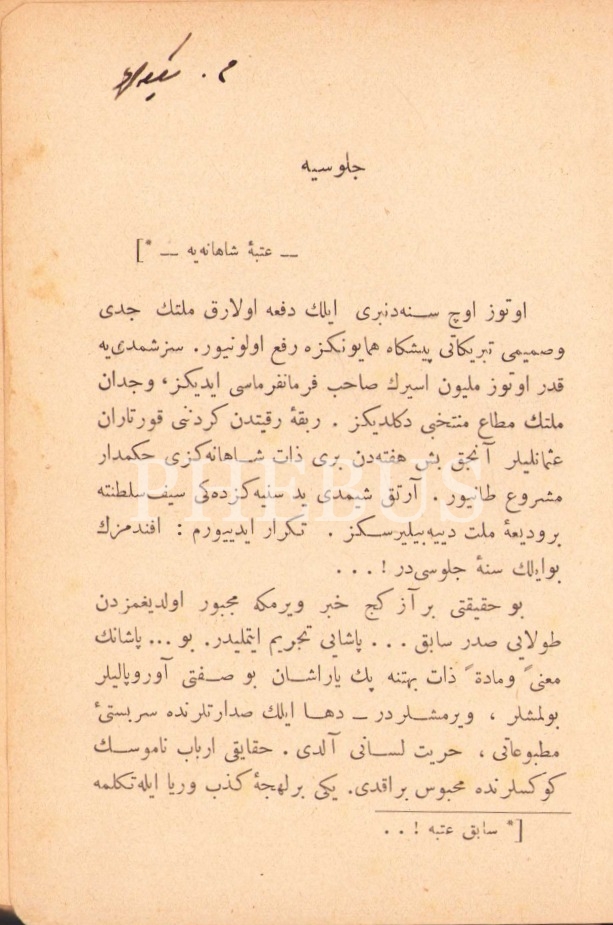 جلوسیه
— عتبۀ شاهانه‌یه — *]
اوتوز اوچ سنه‌دنبری ایلك دفعه اولارق ملتك جدی
وصمیمی تبریكاتی پیشكاه همایونكزه رفع اولونیور. سزشمدی‌یه
قدر اوتوز ملیون اسیرك صاحب فرمانفرماسی ایدیكز، وجدان
ملتك مطاع منتخبی دكلدیكز . ربقۀ رقیتدن كردننی قورتاران
عثمانلیلر آنجق بش هفته‌دن بری ذات شاهانه‌كزی حكمدار
مشروع طانیور . آرتق شیمدی ید سنیه‌كزده‌كی سیف‌سلطنته
برودیعۀ ملت دییه‌بیلیرسكز . تكرار ایدییورم : افندمزك
بوایلك سنۀ جلوسی‌در ! . . .
بو حقیقتی بر آز كج خبر ویرمكه مجبور اولدیغمزدن
طولایی صدر سابق . . . پاشایی تجریم ایتملیدر. بو ... پاشانك
معنیً ومادةً ذات بهتنه پك یاراشان بو صفتی آوروپالیلر
بولمشلر ، ویرمشلردر — دها ایلك صدارتلرنده سربستیٔ
مطبوعاتی ، حریت لسانی آلدی . حقایقی ارباب ناموسك
كوكسلرنده محبوس براقدی. یكی برلهجۀ كذب وریا ایله تكلمه
[* سابق عتبه ! . .
PHEBUS